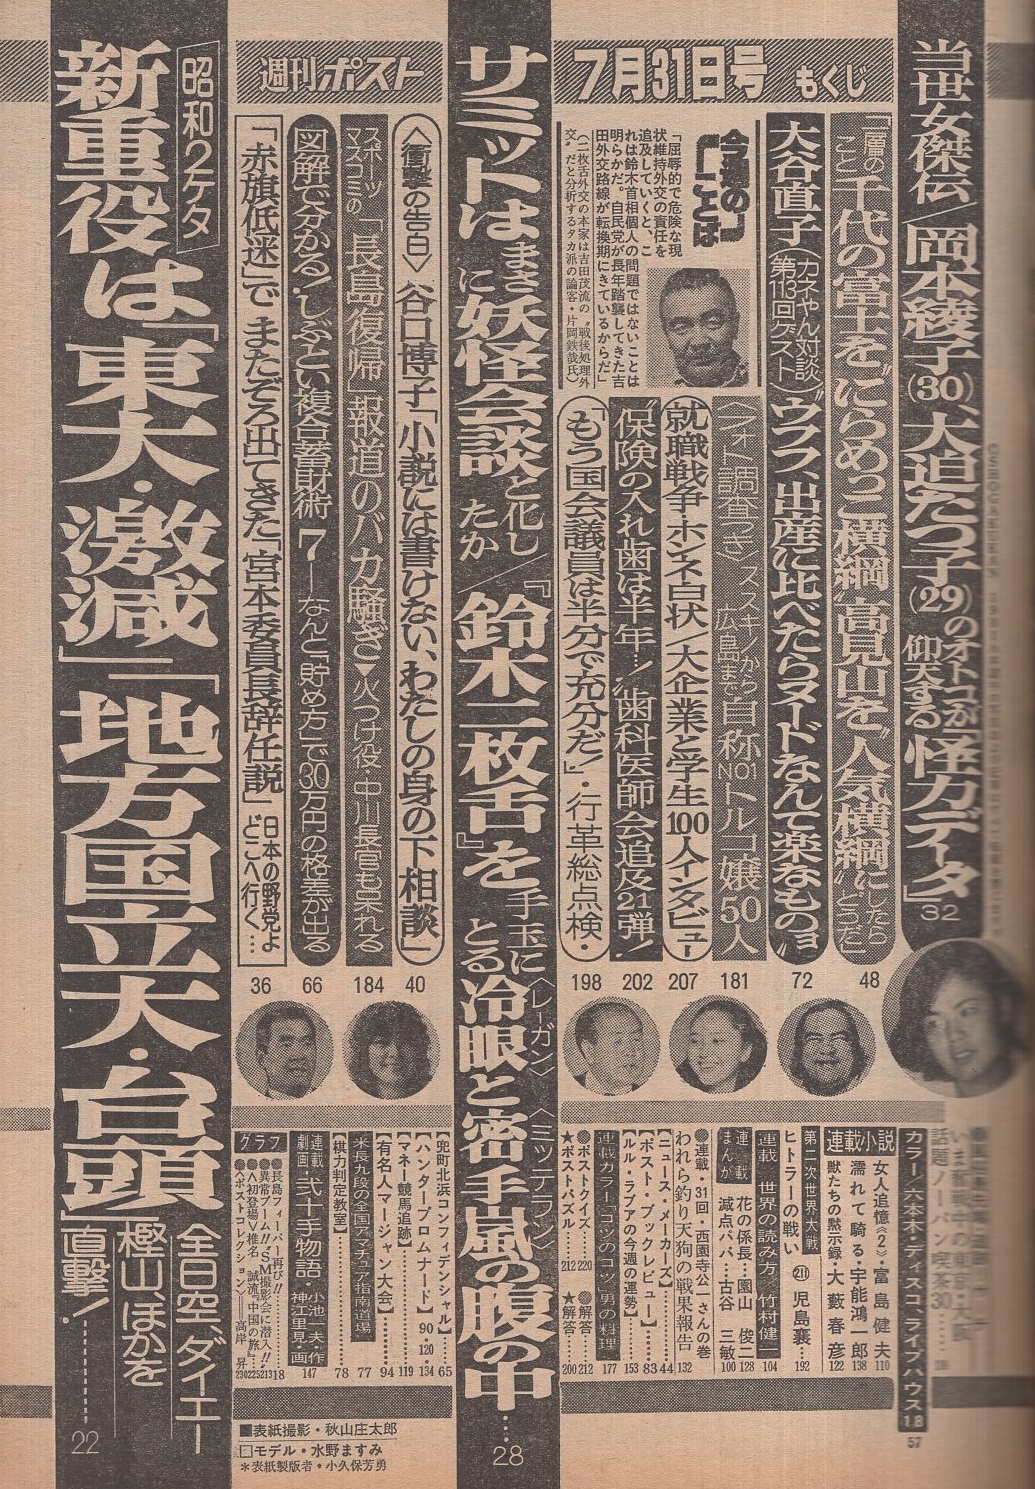 7月31日号 もくじ
週刊ポスト
当世女傑伝/岡本綾子(30)、大迫たつ子(29)のオトコが仰天する「怪力データ」32
「一層のこと千代の富士を“にらめっこ横綱”高見山を“人気横綱”にしたらどうだ」
48
大谷直子〈カネやん対談第113回ゲスト〉“ウフフ、出産に比べたらヌードなんて楽なものョ”
72
〈フォト調査つき〉ススキノから広島まで自称NO1トルコ嬢50人
181
就職戦争・ホンネ白状/大企業と学生100人インタビュー
207
“保険の入れ歯は半年…!”歯科医師会追及21弾!
202
「もう国会議員は半分で充分だ!」・行革総点検・
198
今週のことば
「屈辱的で危険な現状維持外交の責任を追及していくと、これは鈴木首相個人の問題ではないことは明らかだ。自民党が長年踏襲してきた吉田外交路線が転換期にきているからだ」
(二枚舌外交の本家は吉田茂流の“戦後処理外交”だと分析するタカ派の論客・片岡鉄哉氏)
サミットはまさに妖怪会談と化したか/『鈴木二枚舌』を手玉にとる〈レーガン〉〈ミッテラン〉冷眼と密手嵐の腹の中…
28
〈衝撃の告白〉谷口博子「小説には書けない、わたしの身の下相談」
40
スポーツマスコミの「長島復帰」報道のバカ騒ぎ▼火つけ役・中川長官も呆れる
184
図解で分かる!しぶとい複合蓄財術 7―なんと「貯め方」で30万円の格差が出る
66
「赤旗低迷」で またぞろ出てきた「宮本委員長辞任説」日本の野党よどこへ行く…
36
昭和2ケタ
新重役は「東大・激減」「地方国立大・台頭」
全日空、ダイエー
樫山、ほかを
直撃!
22
カラー/六本木・ディスコ、ライブハウス18
57
連載小説
女人追憶《2》・富島健夫 110
濡れて騎る・宇能鴻一郎 138
獣たちの黙示録・大藪春彦 122
第二次世界大戦
ヒトラーの戦い 211 児島襄… 192
連載 世界の読み方 竹村健一 104
連載まんが
花の係長…園山俊二 128
減点パパ…古谷三敏 100
●連載・31回・西園寺公一さんの巻
われら釣り天狗の戦果報告 132
【ニュース・メーカーズ】 44
【ポスト・ブックレビュー】 83
【ルル・ラブアの今週の運勢】 153
連載カラー「コツのコツ」男の料理 177
●ポストクイズ 220 ●解答 212
★ポストパズル 212 ★解答 200
【兜町北浜コンフィデンシャル】 65
【ハンタープロムナード】 90・120・134
【マネー競馬馬追跡】 119
【有名人マージャン大会】 94
米長九段の全国アマチュア指南道場 77
【棋力判定教室】 78
連載劇画・弐十手物語・小池一夫・作 神江里見・画 147
グラフ
●長島フィーバー再び!! 18
●異常ブーム!! SM撮影会に潜入!! 213
●〈初登場〉椎名誠流「中国の旅」 225
●〈ポストコレクション〉高岸昇 230
■表紙撮影・秋山庄太郎
□モデル・水野ますみ
＊表紙製版者・小久保芳勇